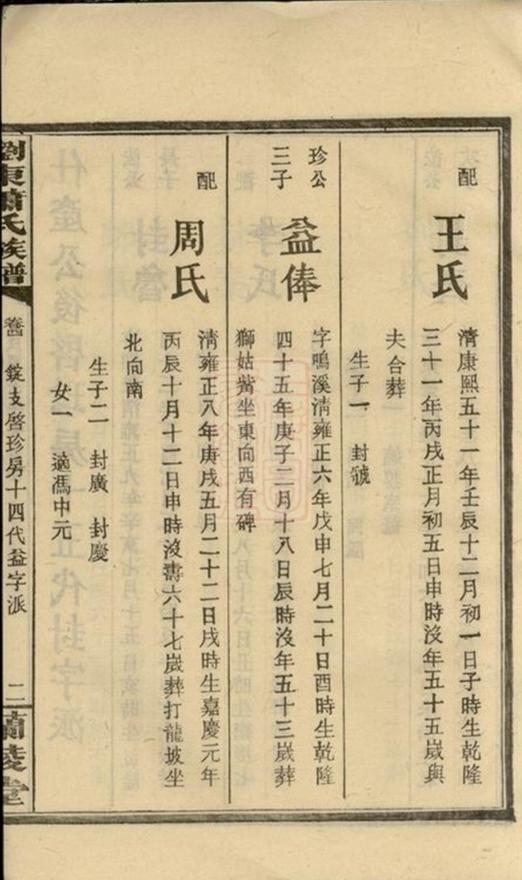 配
王氏
清康熙五十一年壬辰十二月初一日子時生乾隆
三十一年丙戌正月初五日申時沒年五十五歲與
夫合葬
生子一 封號
珍公
三子
益俸
字鳴溪清雍正六年戊申七月二十日酉時生乾隆
四十五年庚子二月十八日辰時沒年五十三歲葬
獅姑觜坐東向西有碑
配
周氏
清雍正八年庚戌五月二十二日戌時生嘉慶元年
丙辰十月十二日申時沒壽六十七歲葬打龍坡坐
北向南
生子二 封廣 封慶
女一 適馮中元
瀏東蕭氏族譜
卷 錠支啓珍房十四代益字派
二
蘭陵堂